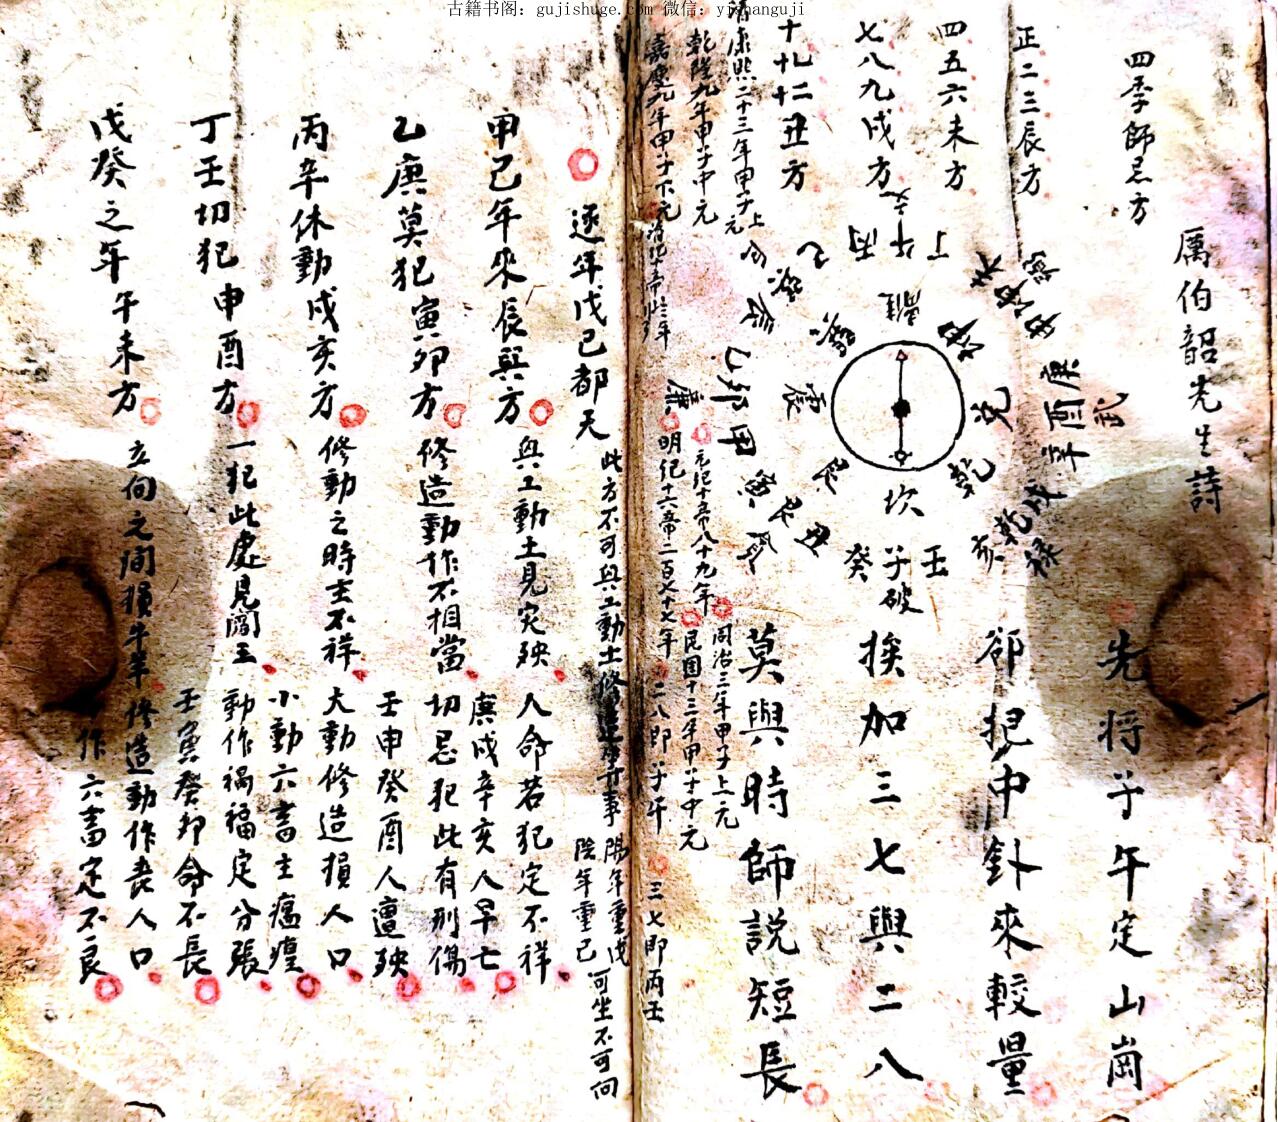 古籍书阁：gujishuge.com 微信：yishanguji
厲伯韶先生詩
四季師忌方
正二三辰方
四五六未方
七八九戌方
十十一十二丑方
先将子午定山崗
卻把中針來較量
挨加三七與二八
莫與時師説短長
離
坤
兌
乾
坎
艮
震
巽
丙午丁
庚酉辛
戌乾亥
壬子癸
丑艮寅
甲卯乙
辰
武
破
廉
清康熙二十三年甲子上元
乾隆九年甲子中元
嘉慶九年甲子下元
同治三年甲子上元
民國十三年甲子中元
元紀十帝八十九年
明紀十六帝二百七十七年
二八即子午
三七即丙壬
逐年戊己都天
此方不可與工動土修造
陽年重戊
陰年重己
可坐不可向
甲己年來辰巽方
與工動土見災殃
人命若犯定不祥
庚戌辛亥人早亡
乙庚莫犯寅卯方
修造動作不相當
切忌犯此有刑傷
壬申癸酉人遭殃
丙辛休動戌亥方
修動之時主不祥
大動修造損人口
小動六畜主瘟瘟
丁壬切犯申酉方
一犯此處見閻王
動作禍福定分張
壬寅癸卯命不長
戊癸之年午未方
立向之間損牛羊
修造動作丧人口
作六畜定不良